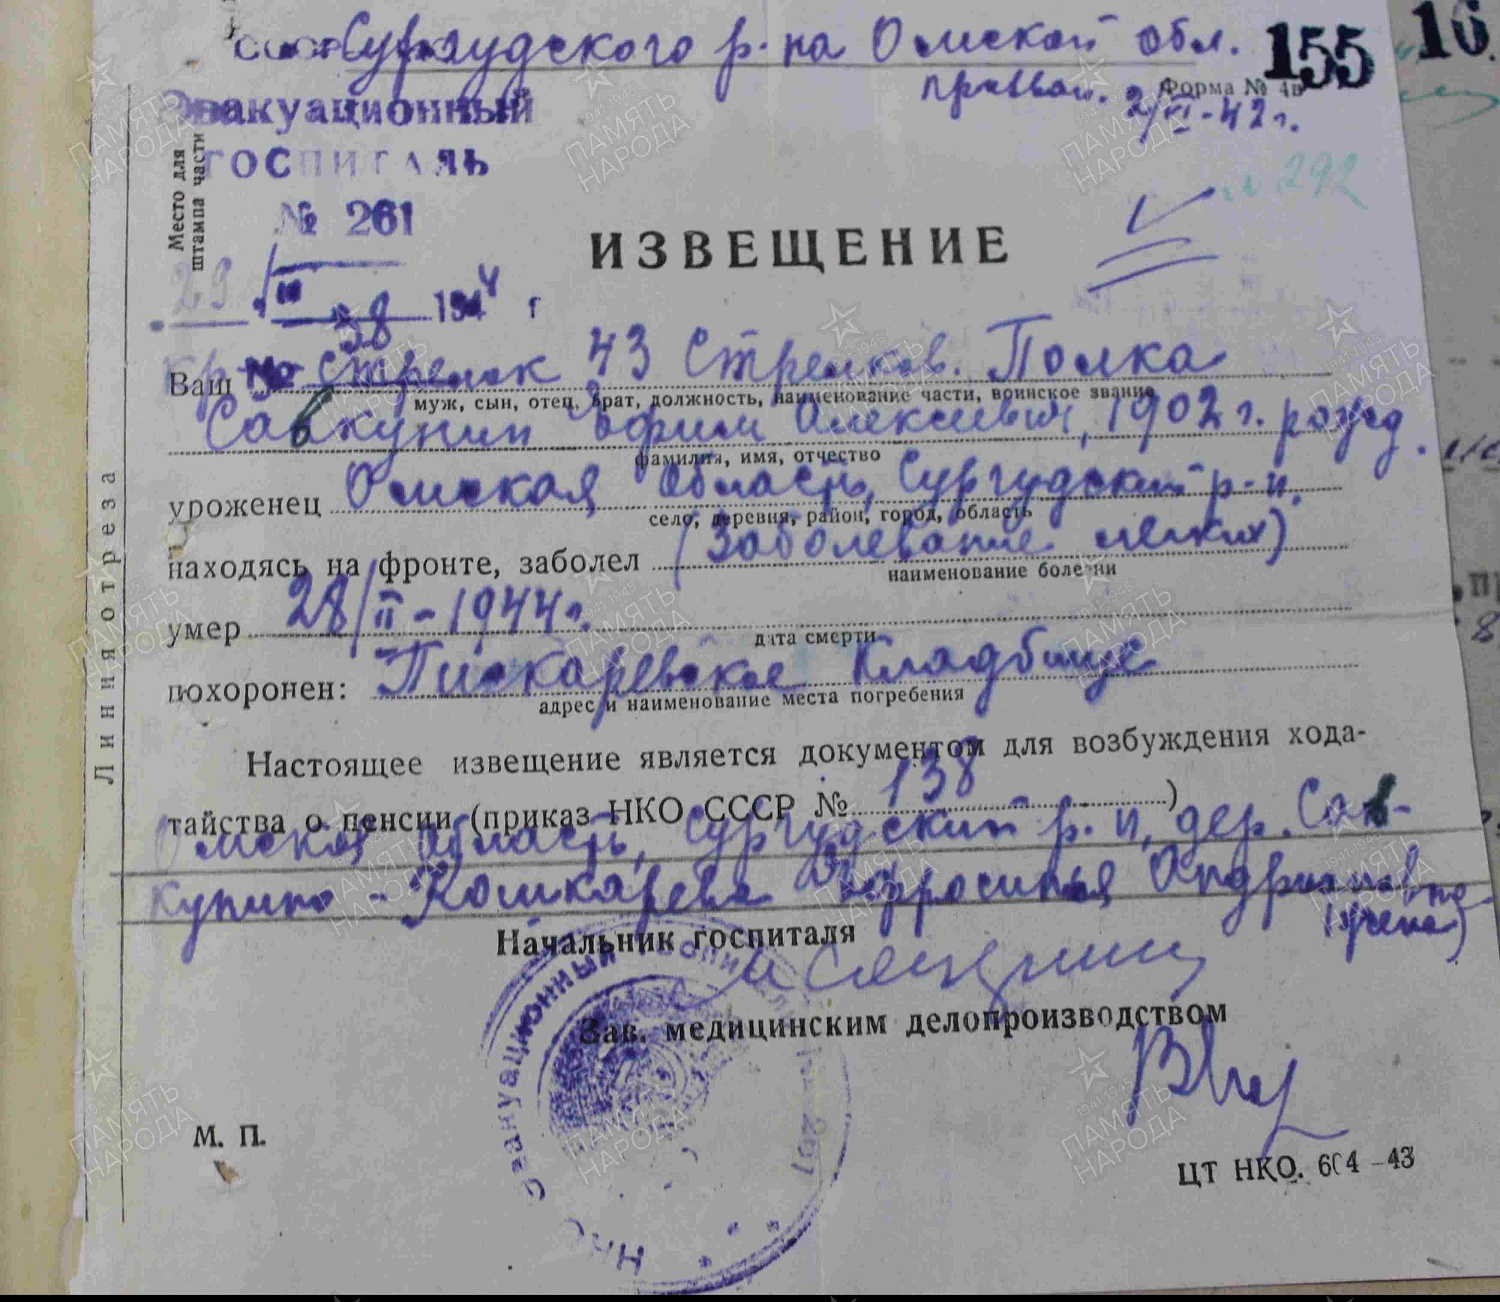 Сургудского р-на Омской обл.
155 16
призван. 2/VI-42 г.
Форма № 4в
Эвакуационный
ГОСПИТАЛЬ
№ 261
Место для
штампа части
№ 292
ИЗВЕЩЕНИЕ
29 III 1944 г
38
Ваш стрелок 43 Стрелков. Полка
муж, сын, отец, брат, должность, наименование части, воинское звание
Савкунин Эфим Алексеевич, 1902 г. рожд.
фамилия, имя, отчество
уроженец Омская Область, Сургудский р-н.
село, деревня, район, город, область
находясь на фронте, заболел (Заболевание легких)
наименование болезни
умер 28/II-1944 г.
дата смерти
похоронен: Пискаревское Кладбище
адрес и наименование места погребения
Настоящее извещение является документом для возбуждения хода-
тайства о пенсии (приказ НКО СССР № 138 )
Омская Область, Сургудский р-н, дер. Сав-
кунино - Кошкарева Эфросинья Андриановна
(жена)
Начальник госпиталя
Зав. медицинским делопроизводством
М. П.
ЦТ НКО. 604-43
Линия отреза
НКО Эвакуационный госпиталь 261
ПАМЯТЬ
НАРОДА
1941-1945